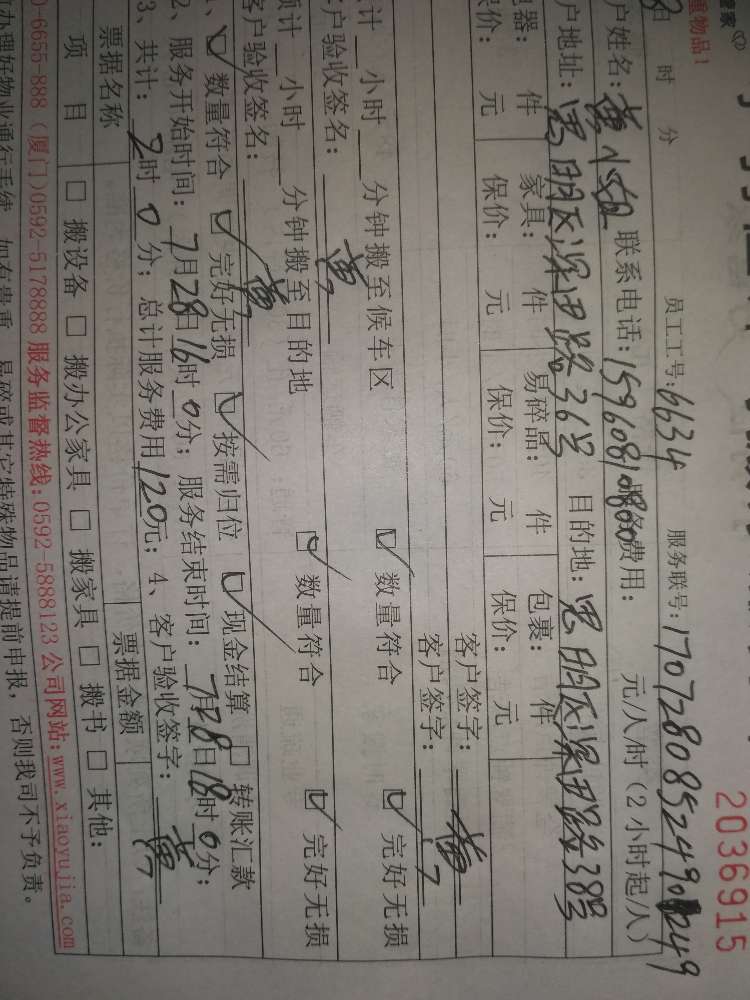 2036915
重物品!
员工工号:6634 服务联号:
日 时 分
户姓名:黄小姐 联系电话:15960810800 服务费用: 元/人/时(2小时起/人)
户地址:思明区深田路36号 目的地:思明区深田路38号
电器: 件 家具: 件 易碎品: 件 包裹: 件
保价: 元 保价: 元 保价: 元 保价: 元
客户签字:黄
客户签字:
计 小时 分钟搬至候车区 数量符合 完好无损
客户验收签名:黄
预计 小时 分钟搬至目的地 数量符合 完好无损
客户验收签名:黄
1、 数量符合 完好无损 按需归位 现金结算 转账汇款
2、服务开始时间:7月28日16时0分;服务结束时间:7月28日18时0分;
3、共计:2时0分;总计服务费用120元;4、客户验收签字:黄
票据名称 票据金额
项 目 □ 搬设备 □ 搬办公家具 □ 搬家具 □ 搬书 □ 其他:
0-6655-888 (厦门)0592-5178888 服务监督热线:0592-5888123 公司网站:www.xiaoyujia.com
办理好物业通行手续,如有贵重、易碎或其它特殊物品请提前申报,否则我司不予负责。